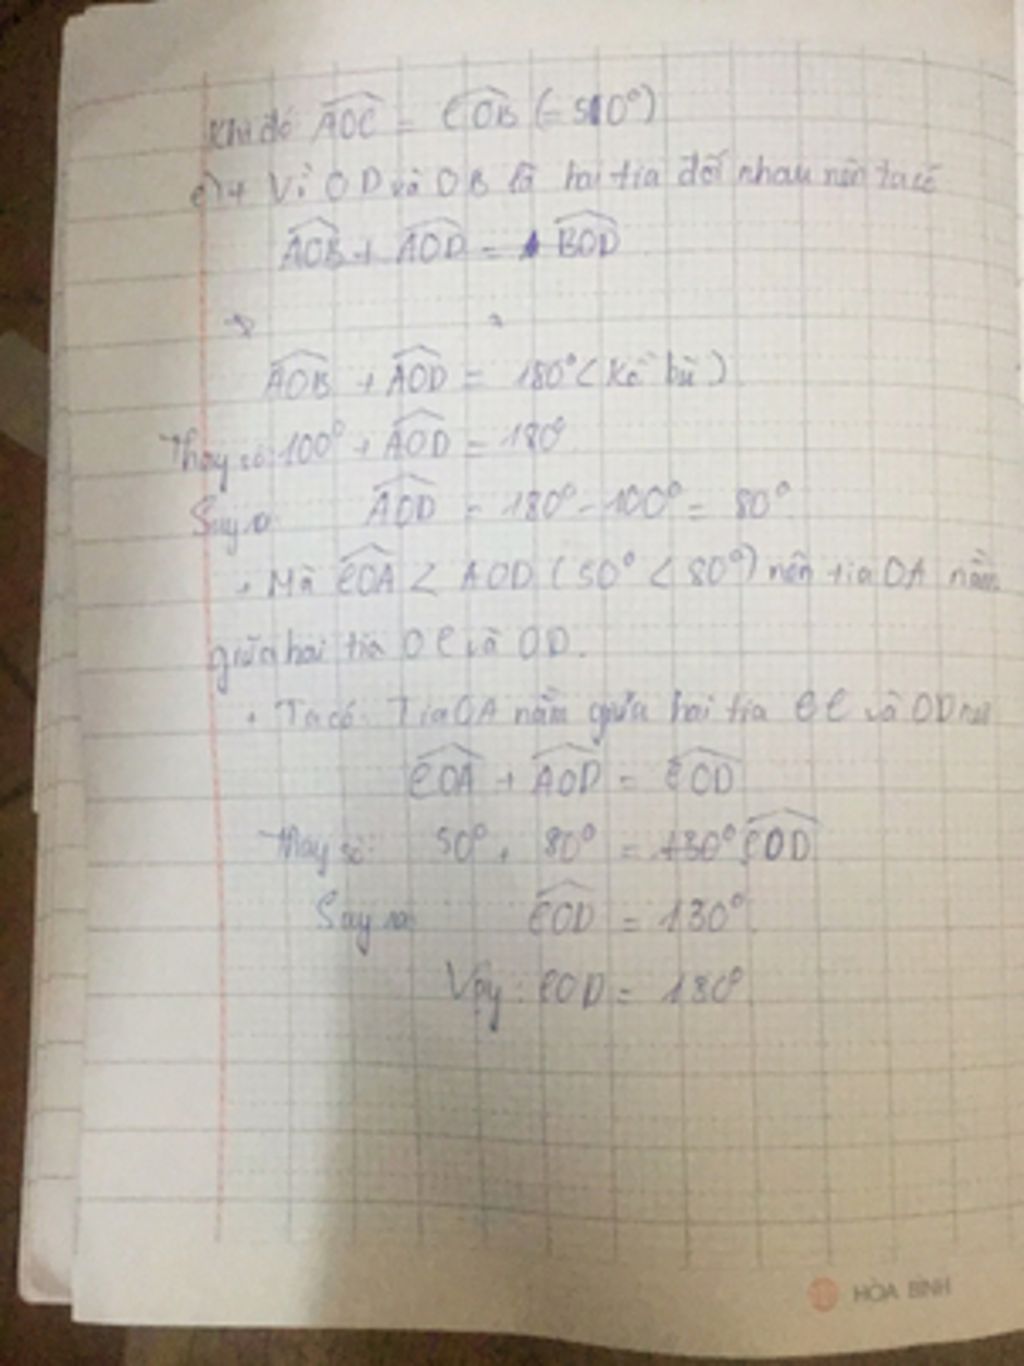 Khi đó AOC = COB (= 50°)
c) + Vì OD và OB là hai tia đối nhau nên ta có
AOB + AOD = BOD
AOB + AOD = 180° (kề bù)
Thay số: 100° + AOD = 180°
Suy ra AOD = 180° - 100° = 80°
+ Mà COA < AOD (50° < 80°) nên tia OA nằm
giữa hai tia OC và OD.
+ Ta có: Tia OA nằm giữa hai tia OC và OD nên
COA + AOD = COD
Thay số: 50° + 80° = COD
Suy ra COD = 130°
Vậy: COD = 130°
HÒA BÌNH